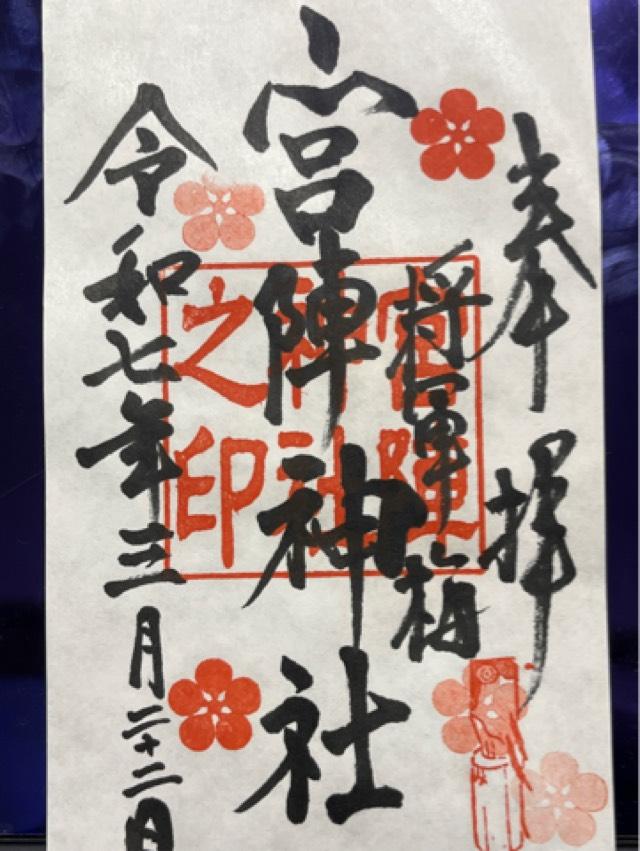 奉拝
将軍梅
宮陣神社
令和七年三月二十二日
宮陣
神社
之印